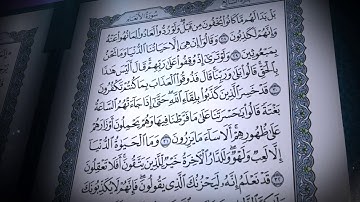 سورة الأنعام
بل بدا لهم ما كانوا يخفون من قبل ولو ردوا لعادوا لما نهوا عنه
وإنهم لكاذبون ٢٨ وقالوا إن هي إلا حياتنا الدنيا وما نحن
بمبعوثين ٢٩ ولو ترى إذ وقفوا على ربهم قال أليس هذا
بالحق قالوا بلى وربنا قال فذوقوا العذاب بما كنتم تكفرون
٣٠ قد خسر الذين كذبوا بلقاء الله حتى إذا جاءتهم الساعة
بغتة قالوا يا حسرتنا على ما فرطنا فيها وهم يحملون أوزارهم
على ظهورهم ألا ساء ما يزرون ٣١ وما الحياة الدنيا
إلا لعب ولهو وللدار الآخرة خير للذين يتقون أفلا تعقلون
٣٢ قد نعلم إنه ليحزنك الذي يقولون فإنهم لا يكذبونك